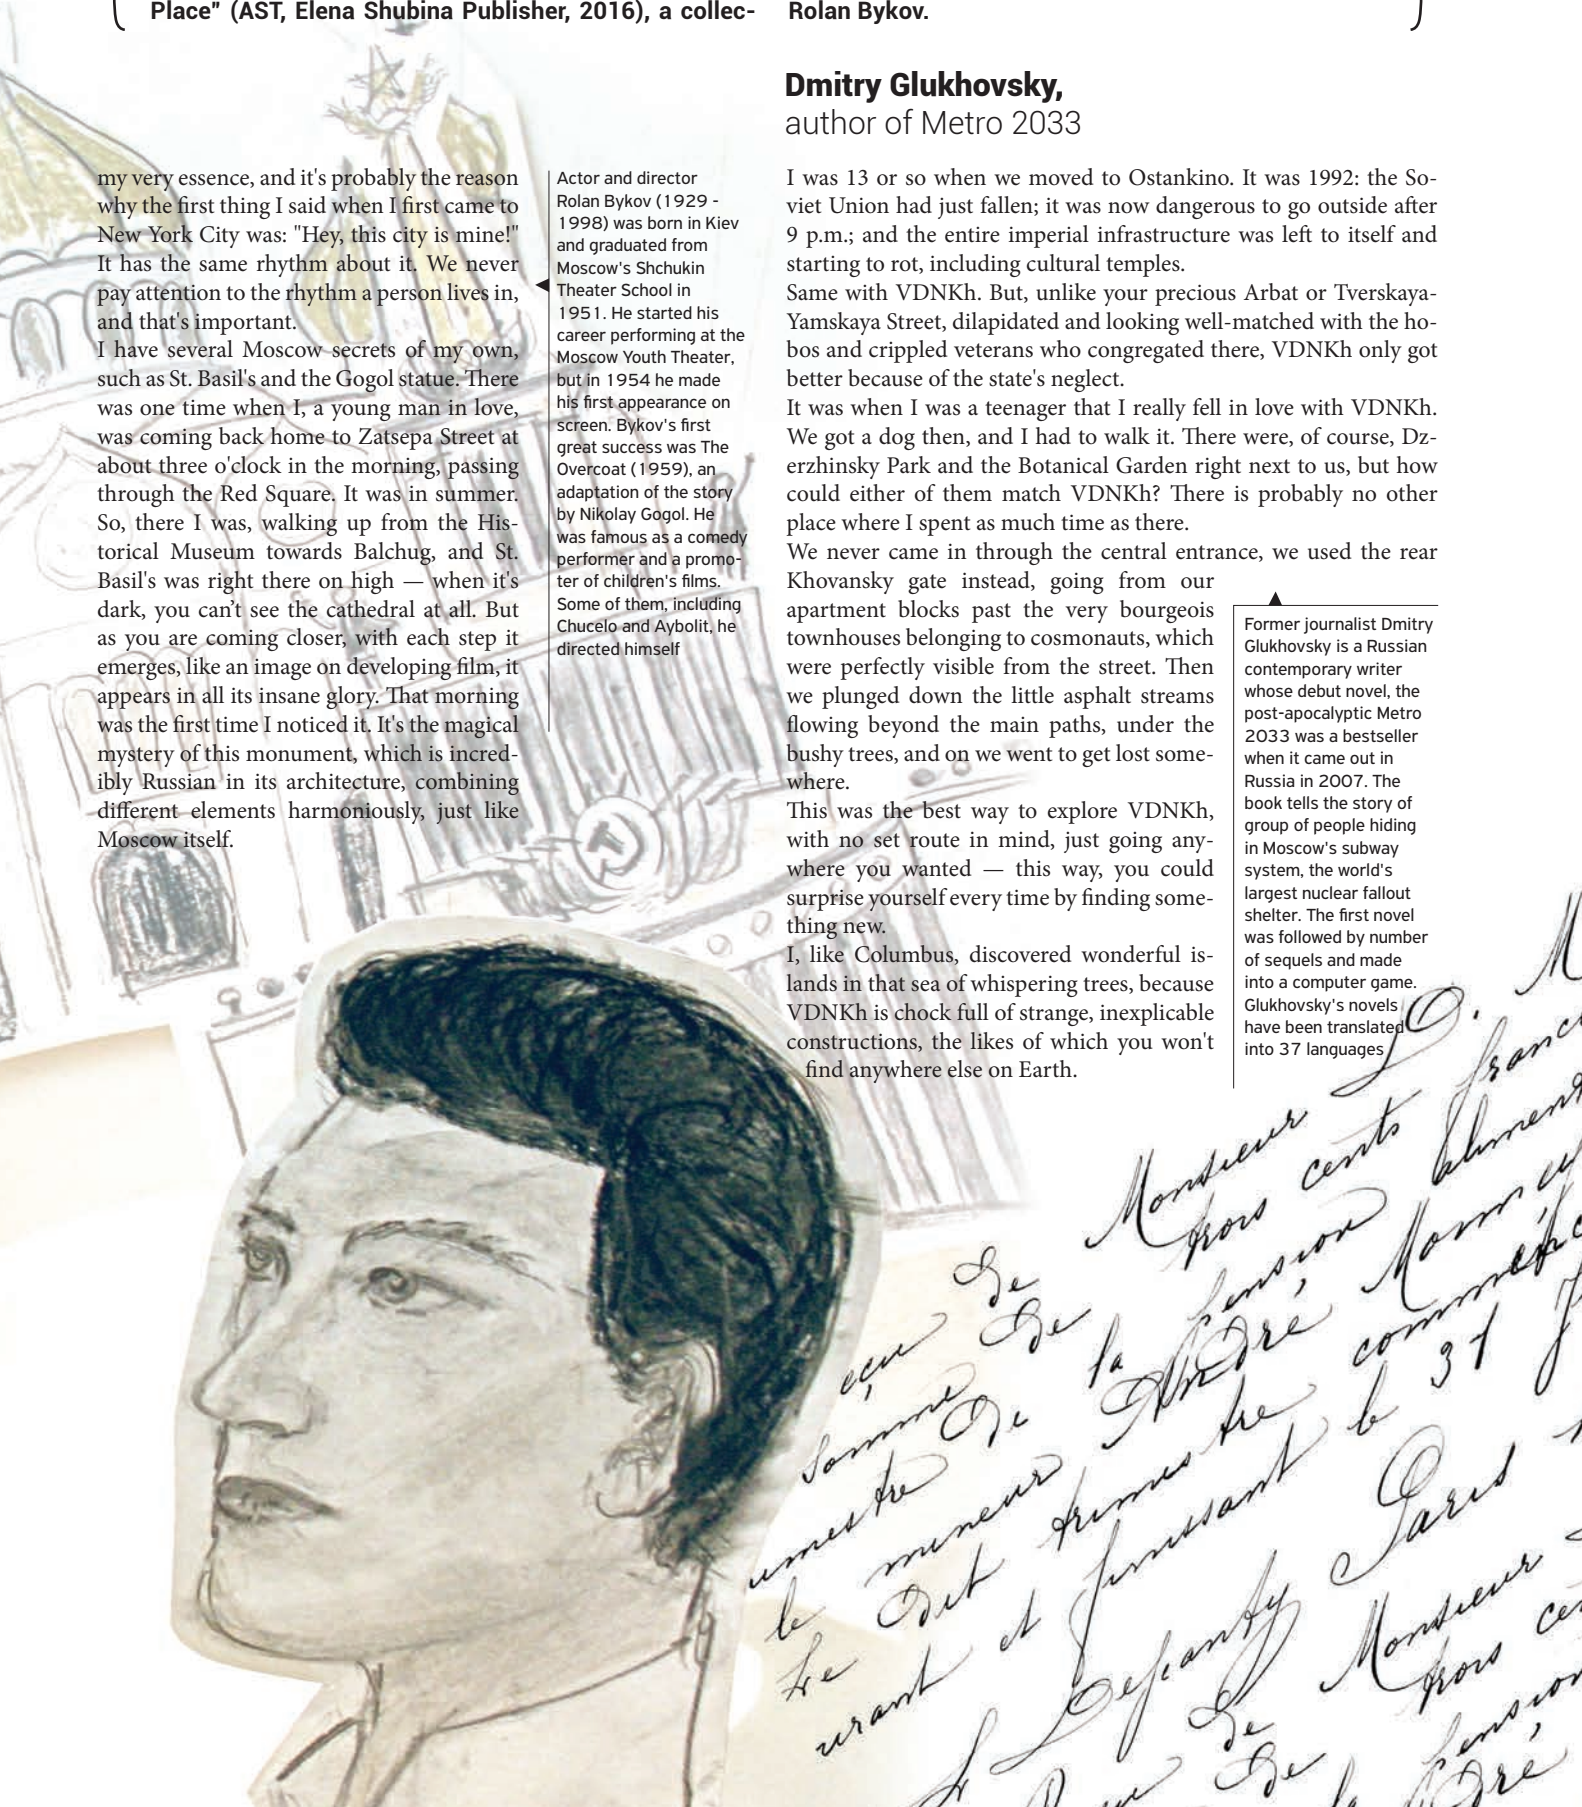 Place" (AST, Elena Shubina Publisher, 2016), a collec-
Rolan Bykov.
my very essence, and it's probably the reason
why the first thing I said when I first came to
New York City was: "Hey, this city is mine!"
It has the same rhythm about it. We never
pay attention to the rhythm a person lives in,
and that's important.
I have several Moscow secrets of my own,
such as St. Basil's and the Gogol statue. There
was one time when I, a young man in love,
was coming back home to Zatsepa Street at
about three o'clock in the morning, passing
through the Red Square. It was in summer.
So, there I was, walking up from the His-
torical Museum towards Balchug, and St.
Basil's was right there on high — when it's
dark, you can't see the cathedral at all. But
as you are coming closer, with each step it
emerges, like an image on developing film, it
appears in all its insane glory. That morning
was the first time I noticed it. It's the magical
mystery of this monument, which is incred-
ibly Russian in its architecture, combining
different elements harmoniously, just like
Moscow itself.
Actor and director
Rolan Bykov (1929 -
1998) was born in Kiev
and graduated from
Moscow's Shchukin
Theater School in
1951. He started his
career performing at the
Moscow Youth Theater,
but in 1954 he made
his first appearance on
screen. Bykov's first
great success was The
Overcoat (1959), an
adaptation of the story
by Nikolay Gogol. He
was famous as a comedy
performer and a promo-
ter of children's films.
Some of them, including
Chucelo and Aybolit, he
directed himself
Dmitry Glukhovsky,
author of Metro 2033
I was 13 or so when we moved to Ostankino. It was 1992: the So-
viet Union had just fallen; it was now dangerous to go outside after
9 p.m.; and the entire imperial infrastructure was left to itself and
starting to rot, including cultural temples.
Same with VDNKh. But, unlike your precious Arbat or Tverskaya-
Yamskaya Street, dilapidated and looking well-matched with the ho-
bos and crippled veterans who congregated there, VDNKh only got
better because of the state's neglect.
It was when I was a teenager that I really fell in love with VDNKh.
We got a dog then, and I had to walk it. There were, of course, Dz-
erzhinsky Park and the Botanical Garden right next to us, but how
could either of them match VDNKh? There is probably no other
place where I spent as much time as there.
We never came in through the central entrance, we used the rear
Khovansky gate instead, going from our
apartment blocks past the very bourgeois
townhouses belonging to cosmonauts, which
were perfectly visible from the street. Then
we plunged down the little asphalt streams
flowing beyond the main paths, under the
bushy trees, and on we went to get lost some-
where.
This was the best way to explore VDNKh,
with no set route in mind, just going any-
where you wanted — this way, you could
surprise yourself every time by finding some-
thing new.
I, like Columbus, discovered wonderful is-
lands in that sea of whispering trees, because
VDNKh is chock full of strange, inexplicable
constructions, the likes of which you won't
find anywhere else on Earth.
Former journalist Dmitry
Glukhovsky is a Russian
contemporary writer
whose debut novel, the
post-apocalyptic Metro
2033 was a bestseller
when it came out in
Russia in 2007. The
book tells the story of
group of people hiding
in Moscow's subway
system, the world's
largest nuclear fallout
shelter. The first novel
was followed by number
of sequels and made
into a computer game.
Glukhovsky's novels
have been translated
into 37 languages
De Monsieur
De trois cents franc
somme la pension
De André Monn
mineur
dit trimestre
et finissant le 31
Paris
De Monsieur
De trois
pension